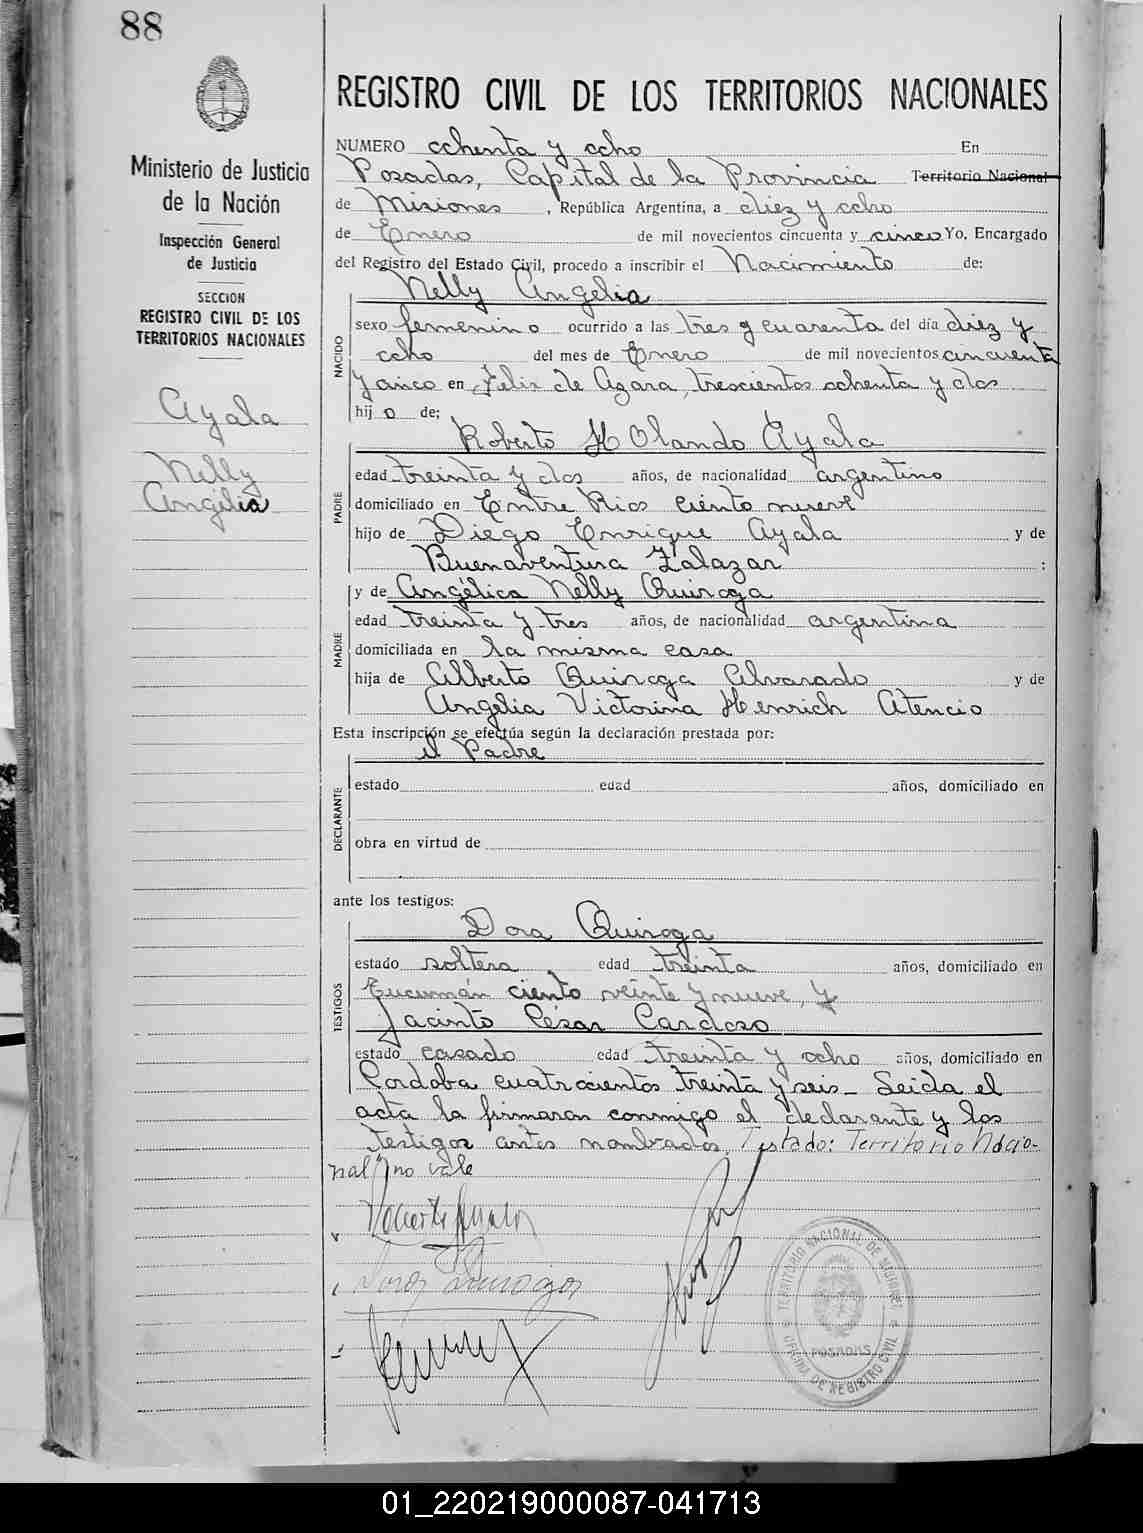 88
Ministerio de Justicia
de la Nación
Inspección General
de Justicia
SECCION
REGISTRO CIVIL DE LOS
TERRITORIOS NACIONALES
Ayala
Nelly
Angélia
REGISTRO CIVIL DE LOS TERRITORIOS NACIONALES
NUMERO ochenta y ocho En
Posadas, Capital de la Provincia Territorio Nacional
de Misiones, República Argentina, a diez y ocho
de Enero de mil novecientos cincuenta y cinco Yo, Encargado
del Registro del Estado Civil, procedo a inscribir el Nacimiento de:
Nelly Angelia
NACIDO
sexo femenino ocurrido a las tres y cuarenta del día diez y
ocho del mes de Enero de mil novecientos cincuenta
y cinco en Felix de Azara, trescientos ochenta y dos
hij o de;
Roberto H Olando Ayala
PADRE
edad treinta y dos años, de nacionalidad argentino
domiciliado en Entre Rios ciento nueve
hijo de Diego Enrique Ayala y de
Buenaventura Zalazar :
y de Angélica Nelly Quiroga
MADRE
edad treinta y tres años, de nacionalidad argentina
domiciliada en la misma casa
hija de Alberto Quiroga Alvarado y de
Angélia Victorina Henrich Atencio
Esta inscripción se efectúa según la declaración prestada por:
el Padre
DECLARANTE
estado edad años, domiciliado en
obra en virtud de
ante los testigos:
Dora Quiroga
TESTIGOS
estado soltera edad treinta años, domiciliado en
Tucumán ciento veinte y nueve, y
Jacinto César Cardoso
estado casado edad treinta y ocho años, domiciliado en
Cordoba cuatrocientos treinta y seis_ Leida el
acta la firmaron conmigo el declarante y los
testigos antes nombrados, Testado: Territorio Nacio-
nal" no vale
Dora Quiroga
TERRITORIO NACIONAL DE MISIONES
POSADAS
OFICINA DE REGISTRO CIVIL
01_220219000087-041713